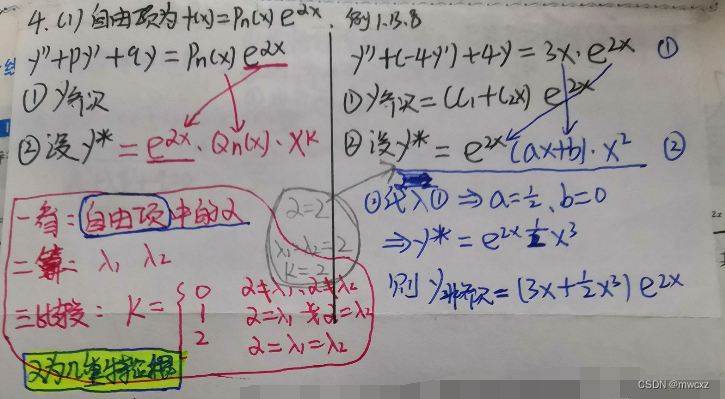 4.(1) 自由项为 f(x)=Pn(x) e^{αx}.
y''+py'+qy=Pn(x) e^{αx}
① y齐次
② 设 y*=e^{αx}·Qn(x)·x^k
一看:自由项中的α
二算:λ1 λ2
三比较:k={0 α≠λ1、α≠λ2
1 α=λ1 或 α=λ2
2 α=λ1=λ2
α为几重特征根
例1.13.8
y''+(-4y')+4y=3x·e^{2x} ①
① y齐次=(C1+C2x) e^{2x}
② 设 y*=e^{2x}(ax+b)·x^2 ②
α=2
λ1=λ2=2
k=2
②代入① ⇒ a=1/2、b=0
⇒y*=e^{2x} 1/2 x^3
则 y非齐次=(3x+1/2x^3) e^{2x}
CSDN @mwcxz